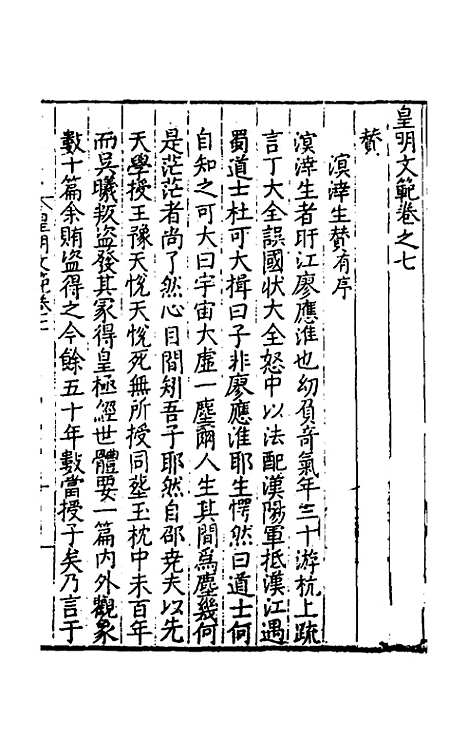 皇明文範卷之七
贊
溟涬生贊有序
溟涬生者盱江廖應淮也幼負奇氣年三十游杭上疏
言丁大全誤國狀大全怒中以法配漢陽軍抵漢江遇
蜀道士杜可大揖曰子非廖應淮耶生愕然曰道士何
自知之可大曰宇宙大虛一塵爾人生其間爲塵幾何
是茫茫者尚了然心目間矧吾子耶然自邵尭夫以先
天學授王豫天悅天悅死無所授同塟玉枕中未百年
而吳曦叛盜發其冢得皇極經世體要一篇内外觀象
數十篇余賄盜得之今餘五十年數當授子矣乃言于
皇明文範卷七